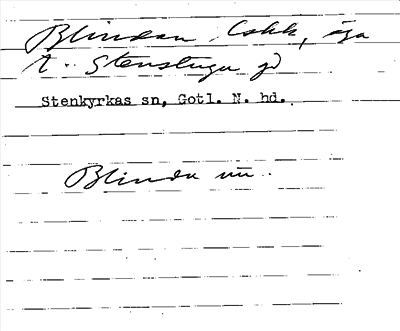 Blindan, äga
t. Stenstugu gd
Stenkyrkas sn, Gotl. N. hd.
Blinda